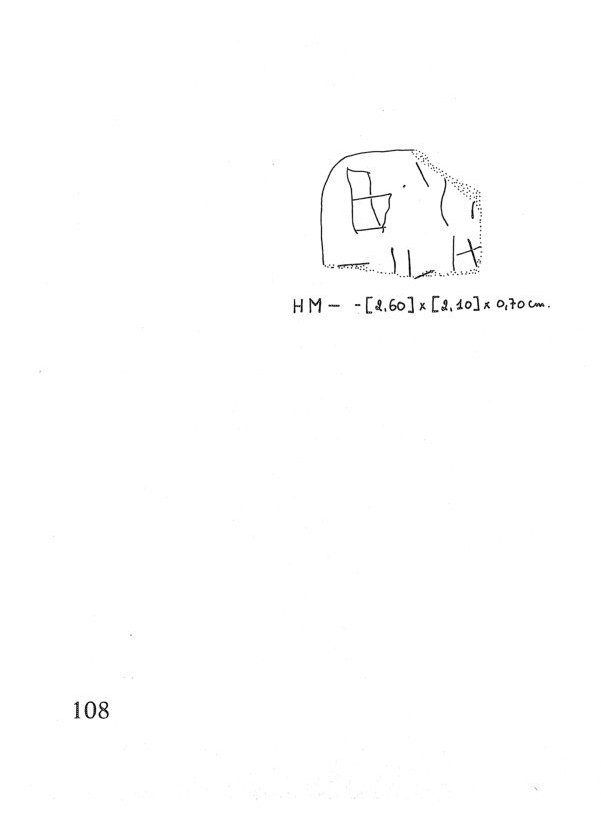 HM— -[2,60]x[2,10]x 0,70 cm.
108